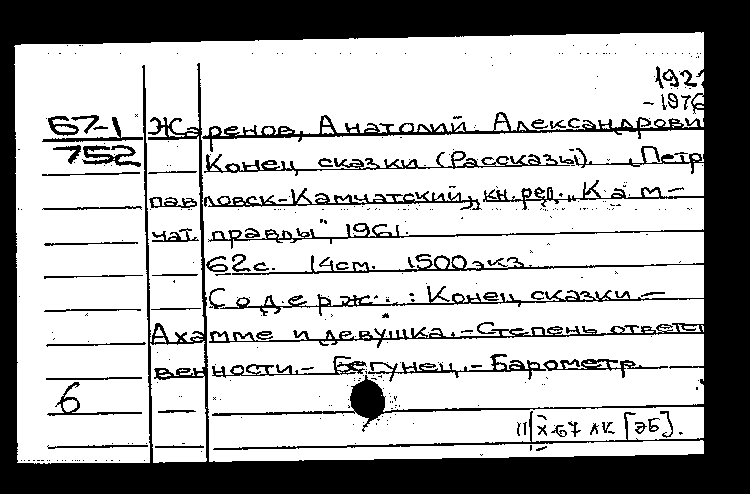 192
-1976
67-1 Жаренов, Анатолий Александрови
752 Конец сказки (Рассказы). Петр
павловск-Камчатский, кн. ред. „Кам-
чат. правды", 1961.
62с. 14см. 1500экз.
Содерж.: Конец сказки.-
Ахамме и девушка.-Степень ответст
венности.- Бегунец.-Барометр.
6
11/X-67 ЛК [ЭБ].